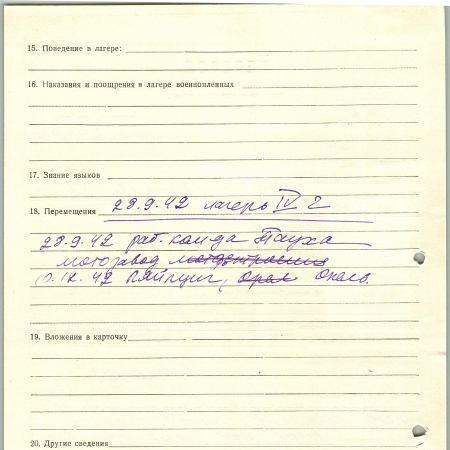 15. Поведение в лагере:
16. Наказания и поощрения в лагере военнопленных
17. Знание языков
28.9.42 лагерь IV г
18. Перемещения
28.9.42 раб. команда Тауха
мотозавод
10.12.42 Лайпциг,
19. Вложения в карточку
20. Другие сведения